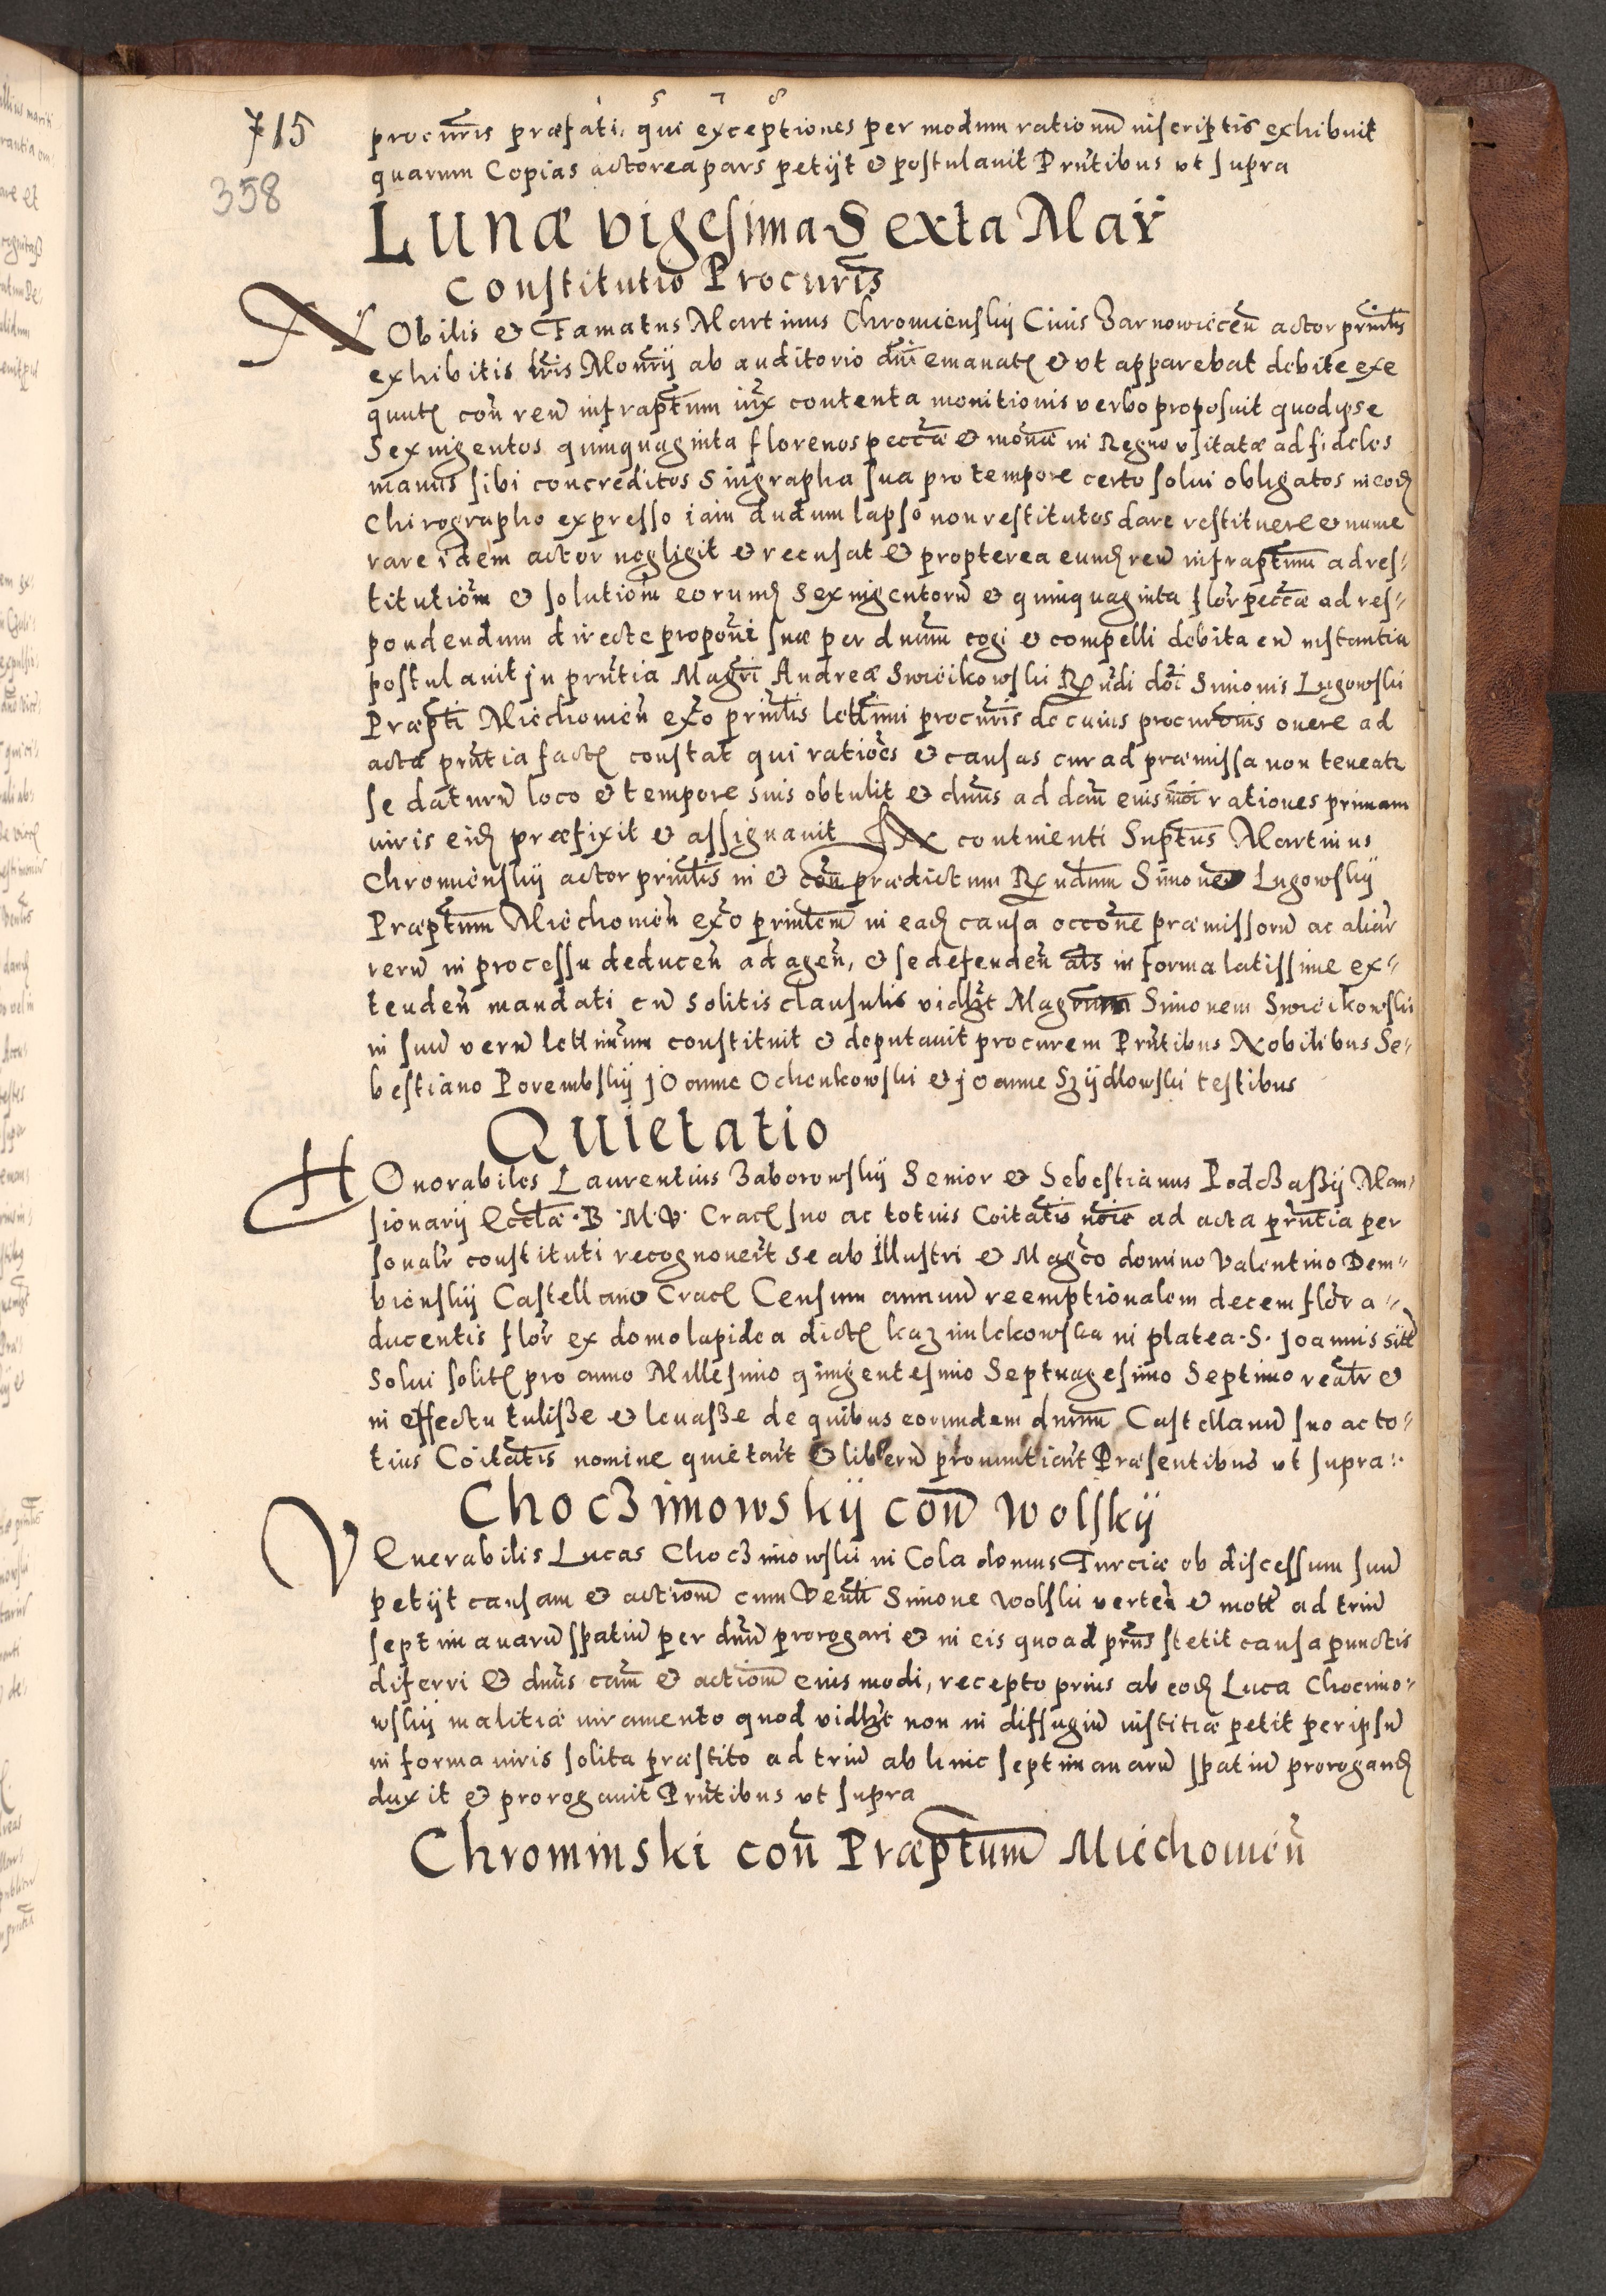 1 5 7 8
715
358
procur̃is præfati, qui exceptiones per modum rationũ inscriptis exhibuit
quarum Copias actorea pars petijt & postulauit Prñtibus vt supra
Lunæ vigesima Sexta Maÿ
Constitutio Procur̃is
NObilis & Famatus Martinus Chromienskij Ciuis Zarnowiceñ actor prinlis
exhibitis lr̃is Monr̃ij ab auditorio dni emanat & vt apparebat debite exe
quut con reũ infraptum iux̃ contenta monitionis verbo proposuit quod ipse
Sexingentos quinquaginta florenos peccæ & monæ in Regno vsitatæ ad fideles
manus sibi concreditos Singrapha sua pro tempore certo solui obligatos in eod
Chirographo expresso iam dudum lapso non restitutos dare restituere & nume
rare idem actor negligit & recusat & propterea eund reũ infraptum ad res⸗
titutioñ & solutioñ eorund Sexingentorũ & quinquaginta flor peccæ ad res⸗
pondendum directe proponi suæ per dnum cogi & compelli debita cũ instantia
postulauit in prñtia Magri Andreæ Swiecikowski Rndi dñi Simonis Lugowski
Præpti Miechouieñ ex̃o prinlis lettimi procuris de cuius procuronis onere ad
acta prñtia fact constat qui ratioes & causas cur ad præmissa non teneatr
se daturũ loco & tempore suis obtulit & dnus ad dan eius moi rationes primam
iuris eid præfixit & assignauit Ex continenti Suptus Martinus
Chromienskij actor prinlis in & con prædictum Rndum Simonem Lugowskij
Præptum Miechouieñ ex̃o prinlem in ead causa occone præmissorũ ac aliar
rerũ in processu deduceñ ad ageñ, & se defendeñ als in forma latissime ex⸗
tendeñ mandati cũ solitis clausulis vidlzt Magrum Simonem Swiecikowski
in suũ verũ lettimum constituit & deputauit procurem Prñtibus Nobilibus Se⸗
bestiano Porembskij joanne Ochenkowski & joanne Szijdlowski testibus
Quietatio
HOnorabiles Laurentius Zaborowskij Senior & Sebestianus Podczaßij Man⸗
sionarij Ecclæ · B · M · V · Crac suo ac totius Coitatis noie ad acta prñtia per
sonalr constituti recognouert se ab Illustri & Magco domino Valentino Dem⸗
bienskij Castellano Crac Censum annuũ reemptionalem decem flor a ⸗
ducentis flor ex domo lapidea dict kazimlekowska in platea · S · Joannis sitt
Solui solit pro anno Millesimo quingentesimo Septuagesimo Septimo realr &
in effectu tulisse & leuasse de quibus eorundem dnum Castellanũ suo ac to⸗
tius Coitatis nomine quietart & liberũ pronuntiart Præsentibus vt supra :·
Choczimowskij con Wolskij
VEnerabilis Lucas Choczimowski in Cola domus Turciæ ob discessum suũ
petijt causam & actionẽ cum Venli Simone Wolski verteñ & mott ad triũ
septimanarũ spatiũ per dnũ prorogari & in eis quoad prñs stetit causa punctis
diferri & dnus cam & actionẽ eius modi, recepto prius ab eod Luca Chocimo⸗
wskij malitiæ iuramento quod vidlzt non in diffugiũ iustitiæ petit per ipsũ
in forma iuris solita præstito ad triũ ab hinc septimanarũ spatiũ prorogand
duxit & prorogauit Prñtibus vt supra
Chrominski con Præptum Miechouieñ